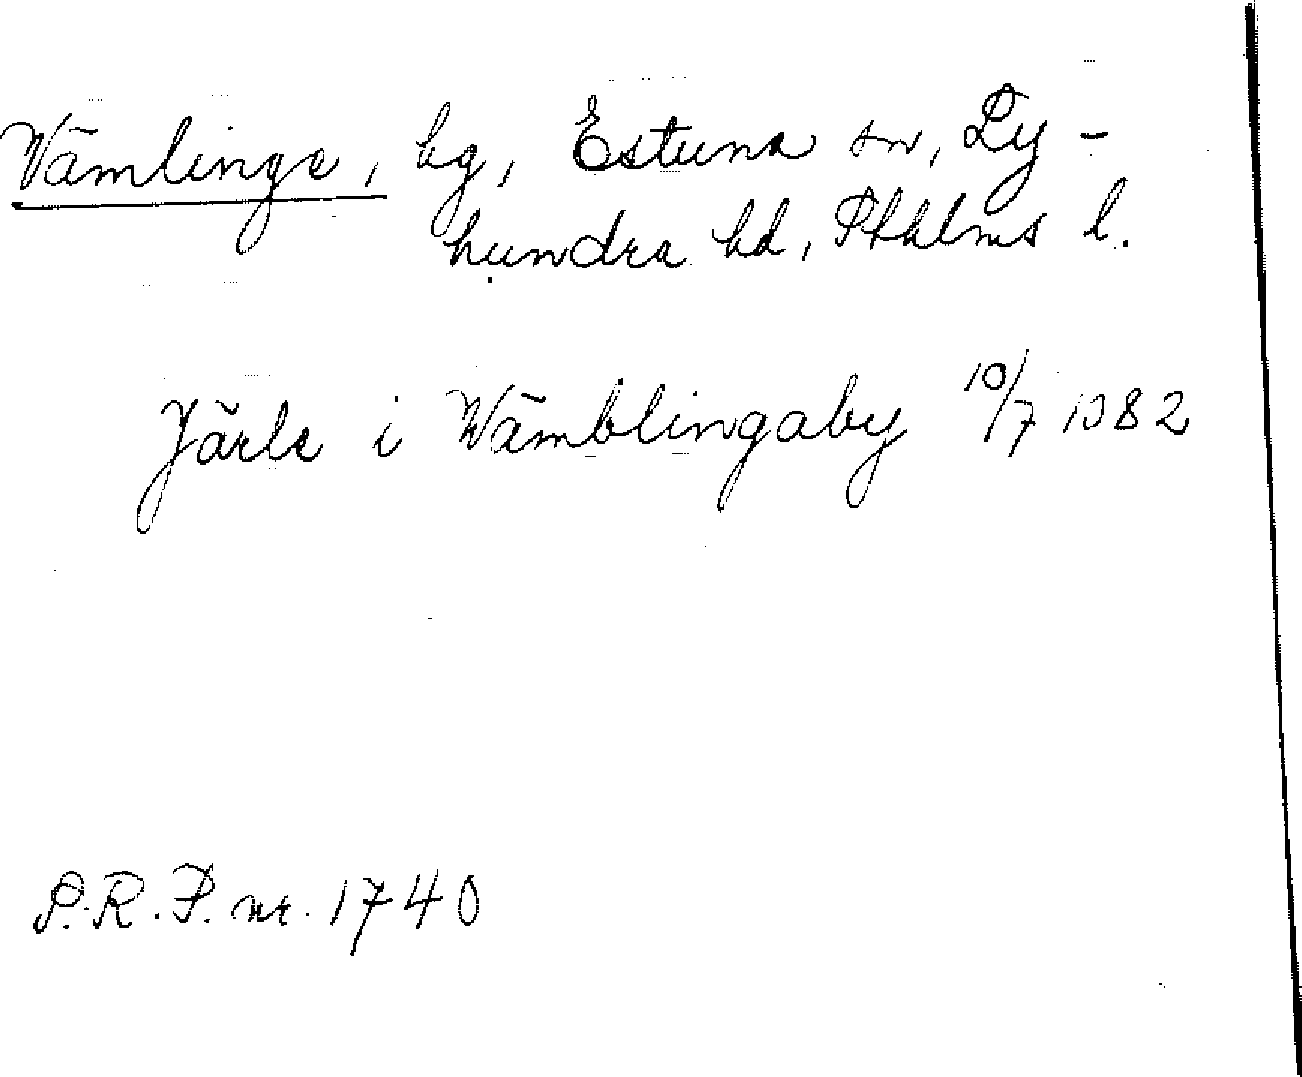 Vämlinge, by, Estuna sn, Ly-
hundra hd, Sthlms l.
Järle i Wämblingaby 10/7 1382
S.R.P. nr. 1740